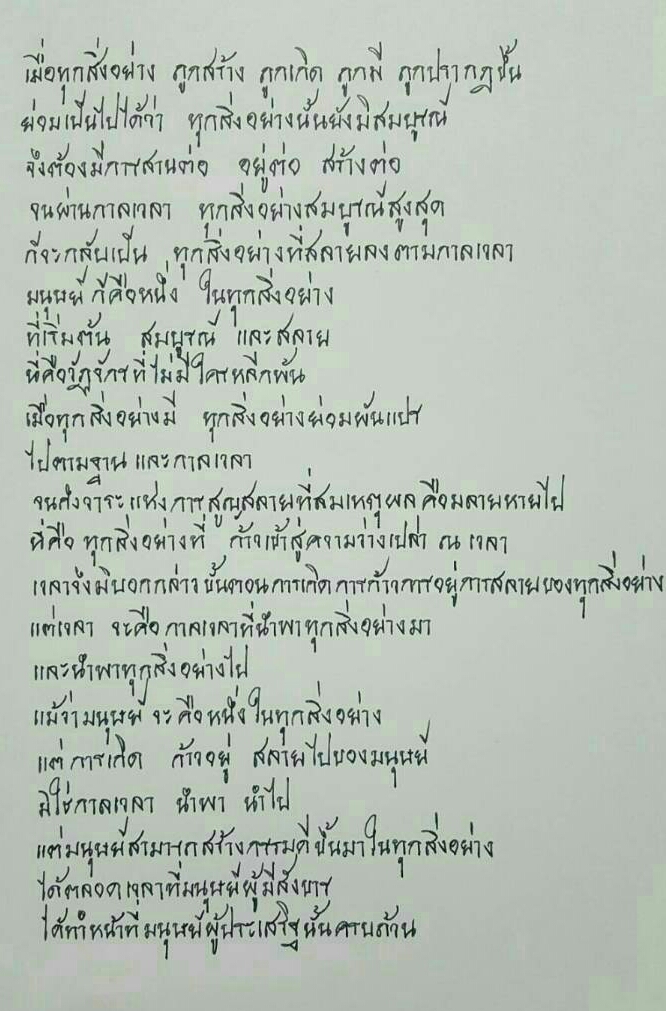 เมื่อทุกสิ่งอย่าง ถูกสร้าง ถูกเกิด ถูกมี ถูกปรากฏขึ้น
ย่อมเป็นไปได้ว่า ทุกสิ่งอย่างนั้นยังมิสมบูรณ์
จึงต้องมีการสานต่อ อยู่ต่อ สร้างต่อ
จนผ่านกาลเวลา ทุกสิ่งอย่างสมบูรณ์สูงสุด
ก็จะกลับเป็น ทุกสิ่งอย่างที่สลายลงตามกาลเวลา
มนุษย์ ก็คือหนึ่ง ในทุกสิ่งอย่าง
ที่เริ่มต้น สมบูรณ์ และสลาย
นี่คือวัฏจักรที่ไม่มีใครหลีกพ้น
เมื่อทุกสิ่งอย่างมี ทุกสิ่งอย่างย่อมผันแปร
ไปตามฐาน และกาลเวลา
จนถึงวาระแห่งการสูญสลายที่สมเหตุผลคือมลายหายไป
นี่คือ ทุกสิ่งอย่างที่ ก้าวเข้าสู่ความว่างเปล่า ณ เวลา
เวลาจึงมิบอกกล่าวขั้นตอนการเกิดการก้าวการอยู่การสลายของทุกสิ่งอย่าง
แต่เวลา จะคือกาลเวลาที่นำพาทุกสิ่งอย่างมา
และนำพาทุกสิ่งอย่างไป
แม้ว่ามนุษย์ จะคือหนึ่งในทุกสิ่งอย่าง
แต่การเกิด ก้าวอยู่ สลายไปของมนุษย์
มิใช่กาลเวลา นำพา นำไป
แต่มนุษย์สามารถสร้างกรรมดีขึ้นมาในทุกสิ่งอย่าง
ได้ตลอดเวลาที่มนุษย์ผู้มีสังขาร
ได้ทำหน้าที่มนุษย์ผู้ประเสริฐนั้นครบถ้วน